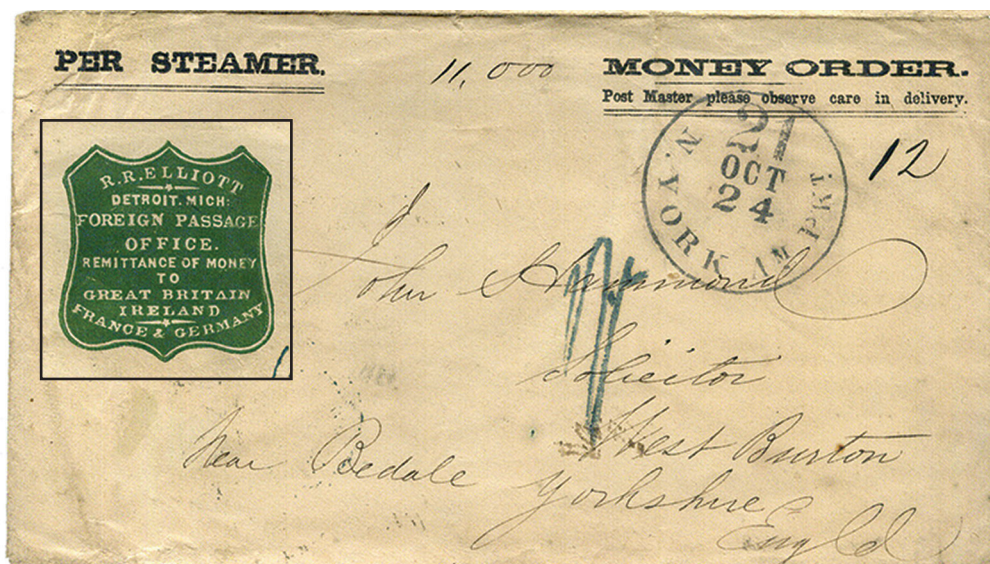 PER STEAMER.
11,000
MONEY ORDER.
Post Master please observe care in delivery.
12
N. YORK AM PKT
21
OCT
24
R.R. ELLIOTT
DETROIT. MICH:
FOREIGN PASSAGE
OFFICE.
REMITTANCE OF MONEY
TO
GREAT BRITAIN
IRELAND
FRANCE & GERMANY
John Hammond
Solicitor
West Burton
Near Bedale
Yorkshire
Engld